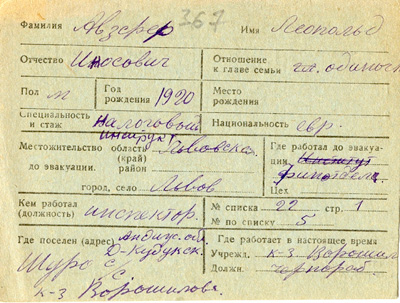 367
Фамилия Авзефер Имя Леопольд
Отчество Иосович Отношение к главе семьи гл. одиноч
Пол м Год рождения 1920 Место рождения
Специальность и стаж Налоговый инспект Национальность евр.
Местожительство до эвакуации. область (край) Львовска
район
город, село Львов
Где работал до эвакуации Институт
Финотдел
Цех
Кем работал (должность) инспектор. № списка 22 стр. 1
№ по списку 5
Где поселен (адрес) Андиж. об.
Д-Кудукск.
к-з Ворошилова
Где работает в настоящее время
Учрежд. к-з Ворошил
Должн.